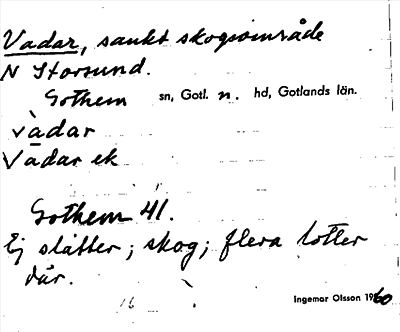 Vadar, sankt skogsområde
N Storsund.
Gothem sn, Gotl. n. hd, Gotlands län.
vàdar
Vādar ek
Gothem 41.
Ej slåtter; skog; flera lotter
där.
16
Ingemar Olsson 1960